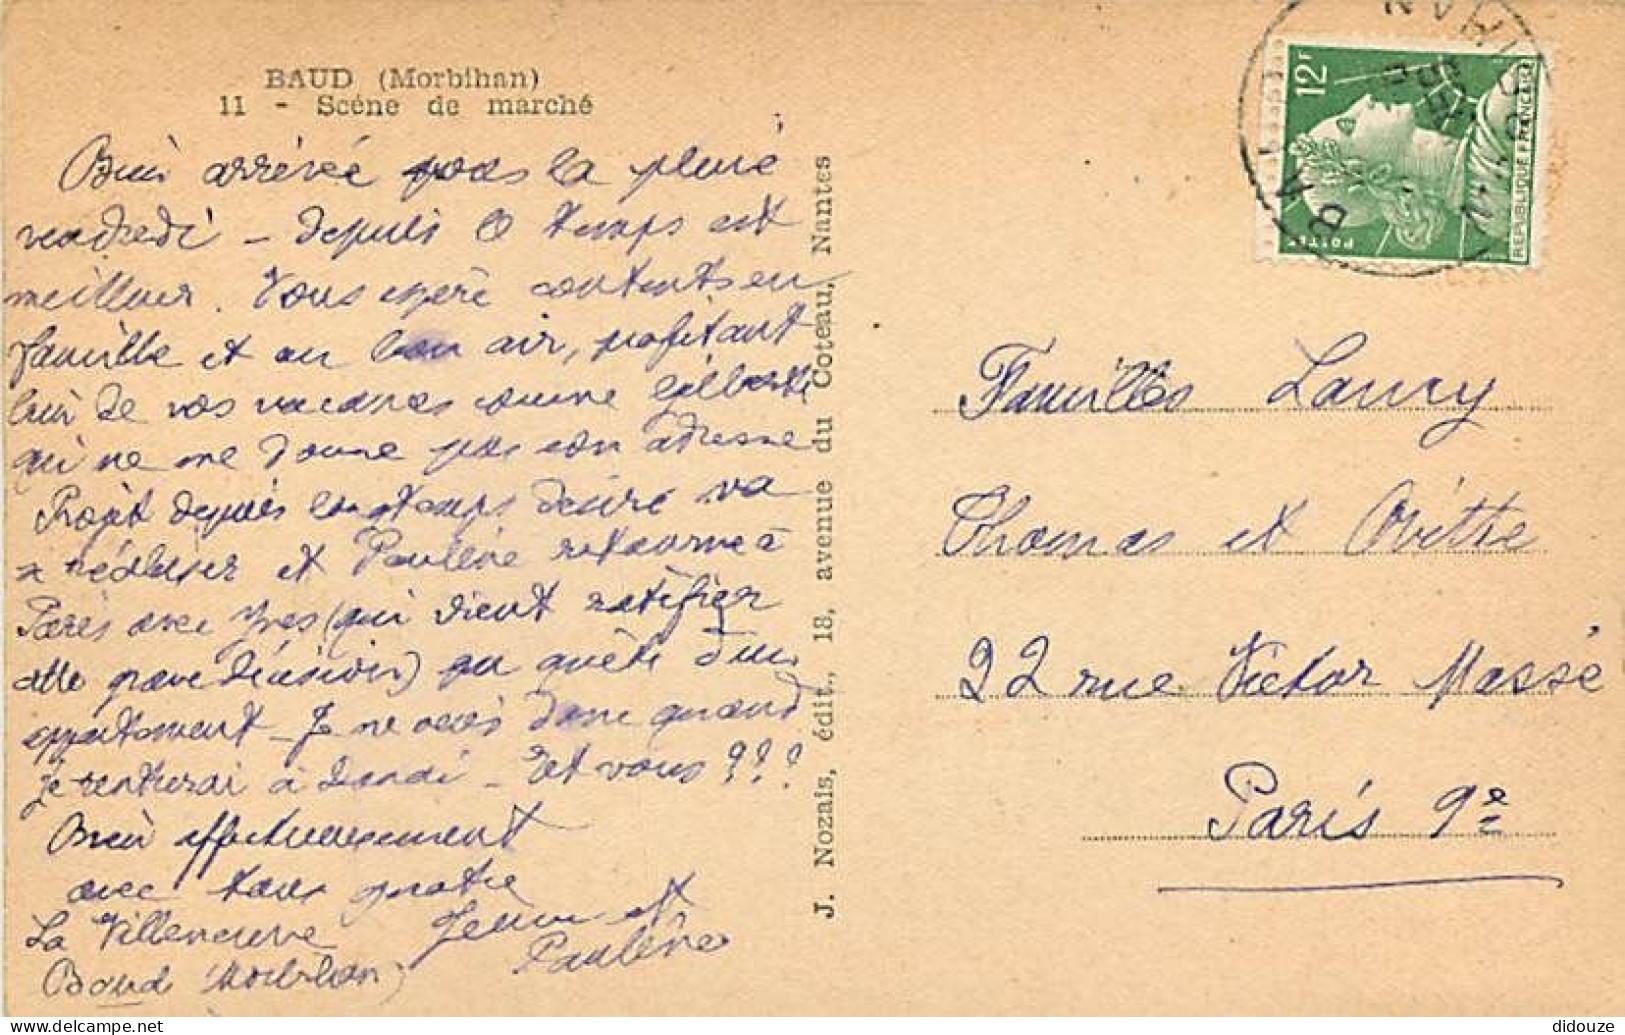 BAUD (Morbihan)
11 - Scène de marché
Bien arrivée sous la pluie
vendredi - depuis le temps est
meilleur. Vous espère contents en
famille et au bon air, profitant
bien de vos vacances comme Gilberte
qui ne me donne pas son adresse
Projet depuis longtemps désiré va
se réaliser et Paulène retourne à
Paris avec Yves (qui vient ratifier
cette grave décision) en quête d'un
appartement - Je ne sais donc quand
je rentrerai à - Et vous ???
Bien affectueusement
avec tous quatre
Jeanne et
Paulène
La Villeneuve
Baud Morbihan)
J. Nozais, édit., 18, avenue du Coteau, Nantes
BAUD
MORBIHAN
12F
POSTES
REPUBLIQUE FRANÇAISE
Familles Laury
Thomas et
22 rue Victor Massé
Paris 9e
didouze
delcampe.net